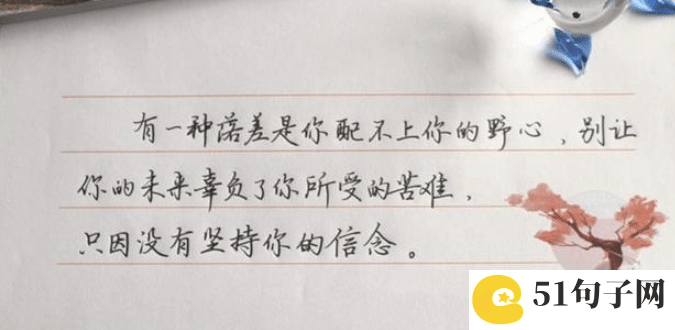 有一种落差是你配不上你的野心，别让
你的未来辜负了你所受的苦难，
只因没有坚持你的信念。
51句子网